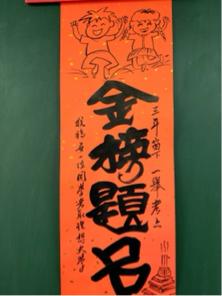 三年窗下 一舉考上
金榜題名
祝福每一位同學考取理想大學